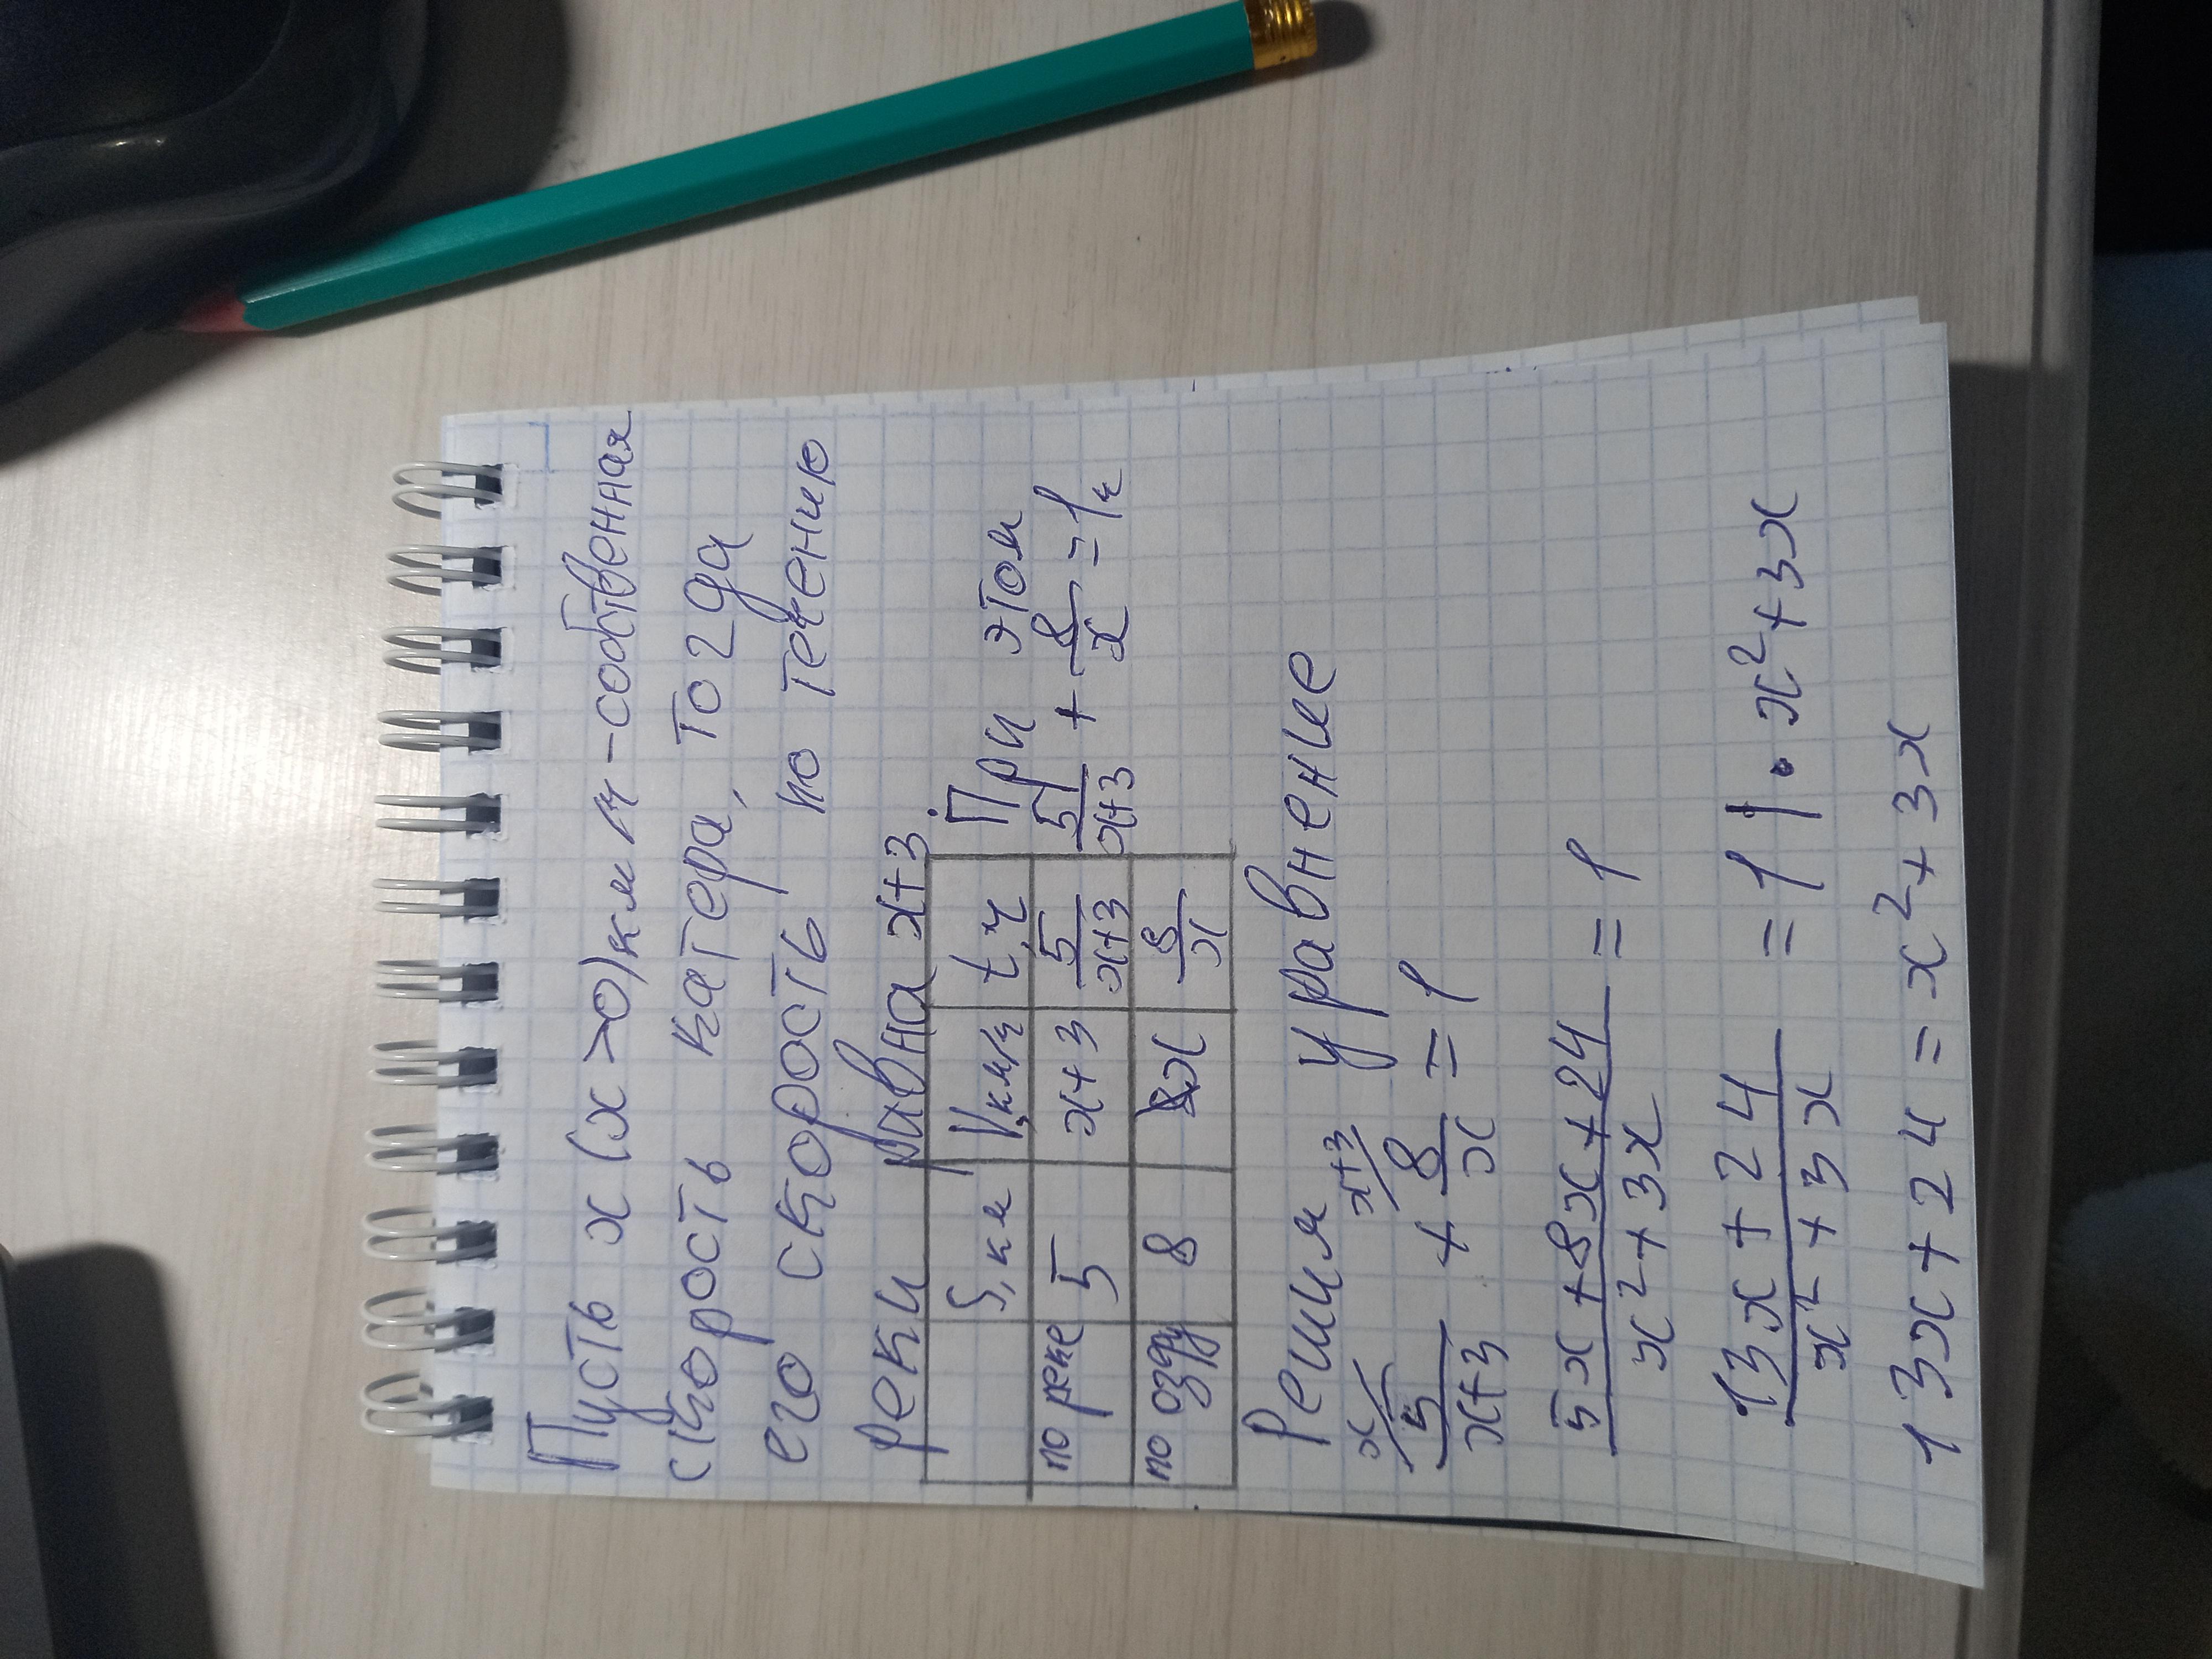 Пусть x (x>0) км/ч - собственная
скорость катера, тогда
его скорость по течению
реки равна x+3.
S, км V, км/ч t, ч
по реке 5 x+3 5/(x+3)
по озеру 8 x 8/x
При этом
5/(x+3) + 8/x = 1 ч
Решим уравнение
x/ x+3/
5/(x+3) + 8/x = 1
(5x+8x+24)/(x²+3x) = 1
(13x+24)/(x²+3x) = 1 | · x²+3x
13x+24 = x²+3x